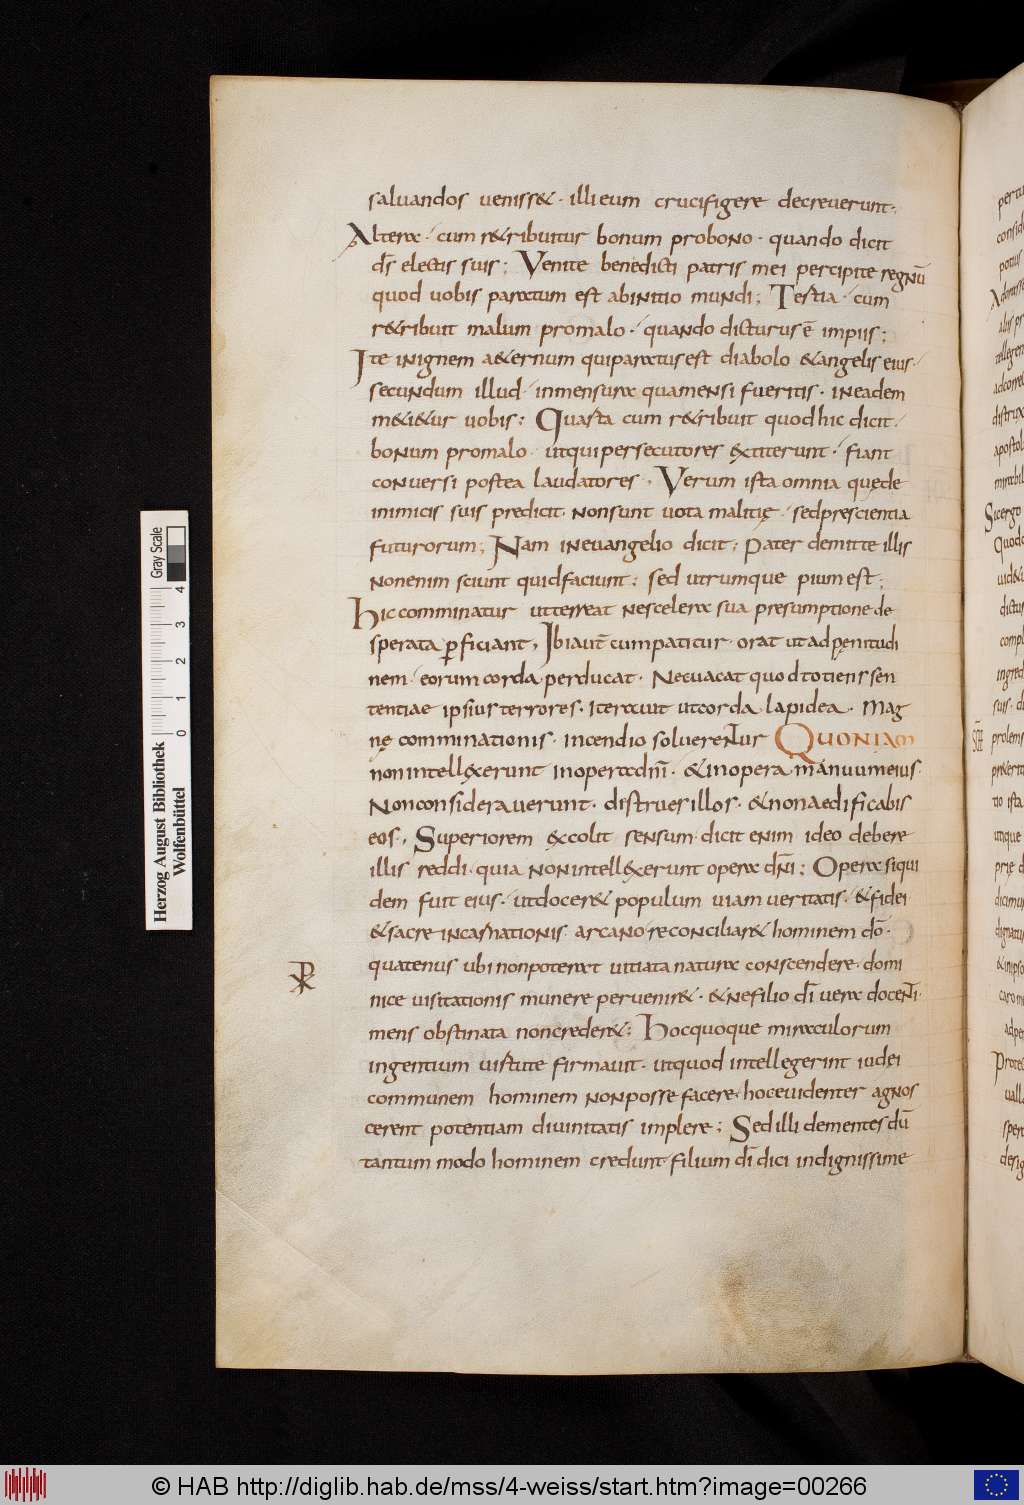 saluandos uenisse&· illi eum crucifigere decreuerunt·
Altera· cum r&ribuitur bonum pro bono· quando dicit
ds̄ electis suis; Venite benedicti patris mei percipite regnū
quod uobis paratum est ab initio mundi; Tertia· cum
r&ribuit malum pro malo· quando dicturus ē impiis;
Ite in ignem a&ernum qui paratus est diabolo & angelis eius·
secundum illud· in mensura qua mensi fueritis· in eadem
m&i&ur uobis: Quarta cum r&ribuit quod hic dicit·
bonum pro malo· ut qui persecutores extiterunt· fiant
conuersi postea laudatores· Verum ista omnia quę de
inimicis suis predicit· non sunt uota malitię· sed prescientia
futurorum; Nam in euangelio dicit; Pater demitte illis
non enim sciunt quid faciunt: sed utrumque pium est;
Hic comminatur ut terreat ne scelera sua presumptione de
sperata ꝑficiant, Ibi aut̄ cum patitur· orat ut ad pęnitudi
nem· eorum corda perducat· Nec uacat quod totiens sen
tentiae ipsius terrores· iterauit ut corda lapidea· mag
nę comminationis· incendio soluerentur QUONIAM
non intellexerunt in opera dn̄i· & in opera manuum eius·
Non considerauerunt· destrues illos· & non aedificabis
eos·, Superiorem excolit sensum· dicit enim ideo debere
illis reddi· quia non intellexerunt opera dn̄i; Opera siqui
dem fuit eius· ut docer& populum uiam ueritatis· & fidei
& sacre incarnationis arcano reconciliar& hominem dō·
quatenus ubi non poterat uitiata natura conscendere· domi
nice uisitationis munere peruenir&· & ne filio dī uera docenti·
mens obstinata non creder&: Hoc quoque miraculorum
ingentium uirtute firmauit· ut quod intellegerint iudei
communem hominem non posse facere· hoc euidenter agnos
cerent potentiam diuinitatis implere; Sed illi dementes dū
tantum modo hominem credunt filium dī dici indignissime
Herzog August Bibliothek
Wolfenbüttel
0 1 2 3 4
Gray Scale
© HAB http://diglib.hab.de/mss/4-weiss/start.htm?image=00266